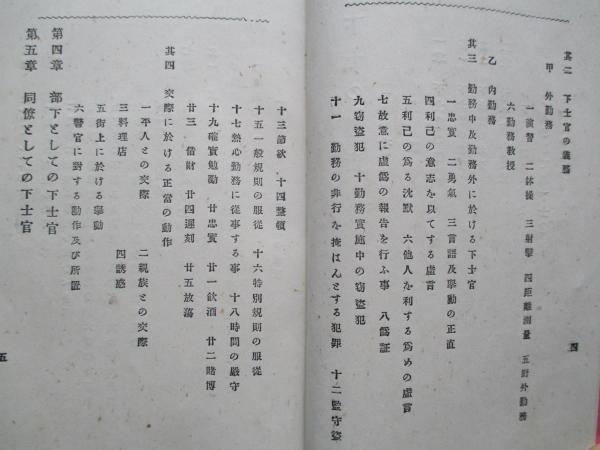 其二 下士官の義務
甲 外勤務
一演習 二体操 三射撃 四距離測量 五野外勤務
六勤務教授
乙 内勤務
其三 勤務中及勤務外に於ける下士官
一忠實 二勇氣 三言語及擧動の正直
四利己の意志を以てする虚言
五利己の爲る沈默 六他人を利する爲めの虚言
七故意に虚僞の報告を行ふ事 八僞証
九窃盗犯 十勤務實施中の窃盗犯
十一 勤務の非行を掩はんとする犯罪 十二監守盗
四
十三節欲 十四整頓
十五一般規則の服從 十六特別規則の服從
十七熱心勤務に從事する事 十八時間の嚴守
十九確實勉勵 廿忠實 廿一飲酒 廿二賭博
廿三 借財 廿四遲刻 廿五放蕩
其四 交際に於ける正當の動作
一平人との交際 二親族との交際
三料理店 四誘惑
五街上に於ける擧動
六警官に對する動作及び所置
第四章 部下としての下士官
第五章 同僚としての下士官
五